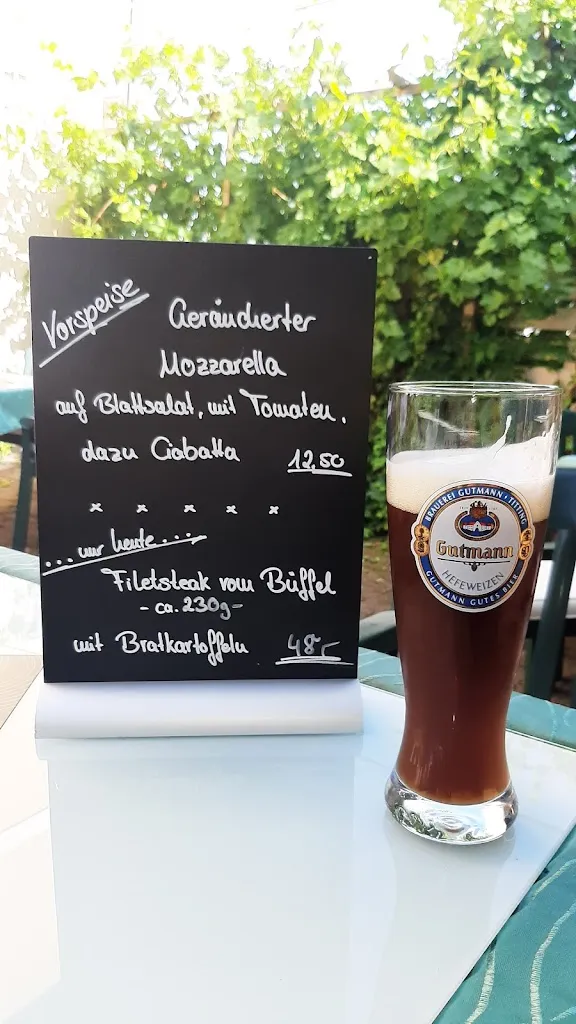 Vorspeise
Geräucherter
Mozzarella
auf Blattsalat, mit Tomaten,
dazu Ciabatta 12,50
x x x x x
... nur heute ...
Filetsteak vom Büffel
- ca. 230g -
mit Bratkartoffeln 48,-
BRAUEREI GUTMANN • TITTING
Gutmann
HEFEWEIZEN
GUTMANN GUTES BIER